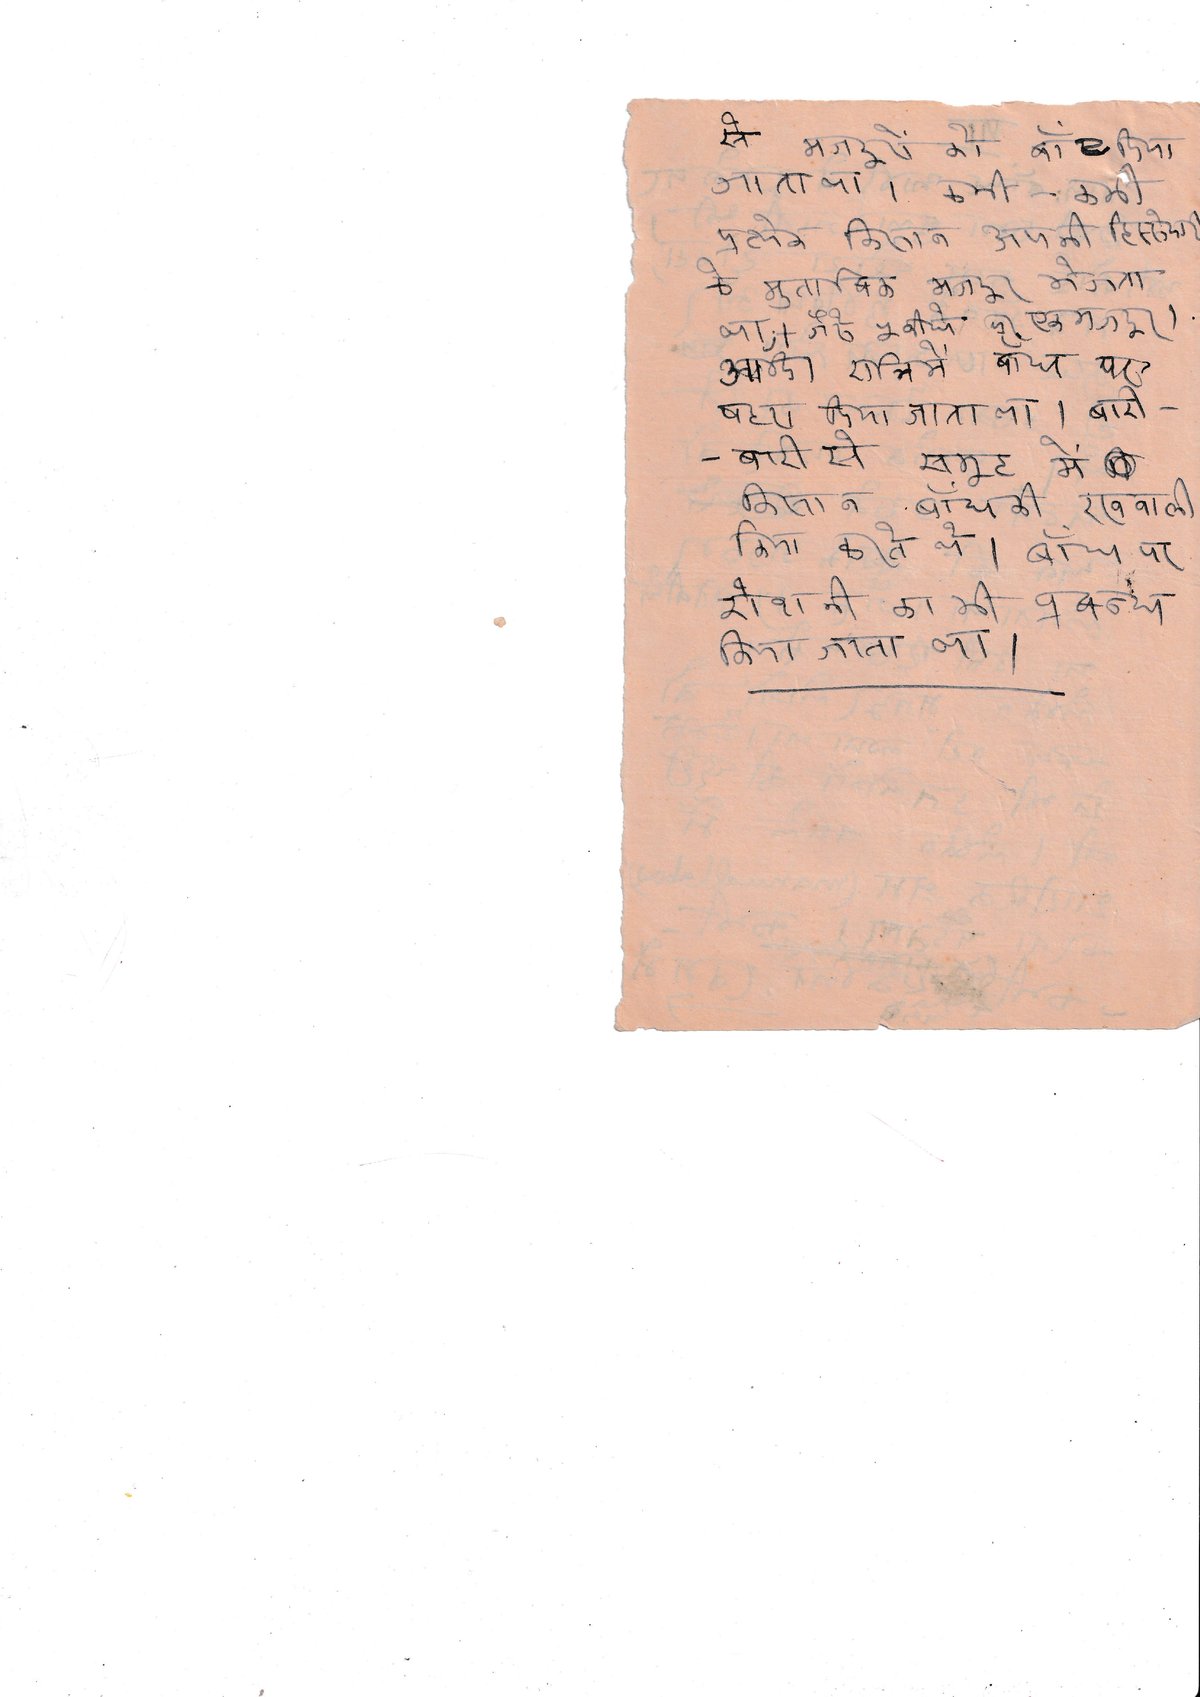 से मजदूरों को बाँट दिया
जाता था। कभी - कभी
प्रत्येक किसान अपनी हिस्सेदारी
के मुताबिक मजदूर भेजता
था। जैसे 5 बीघे पर एक मजदूर।
रात्रि में बाँध पर
पहरा दिया जाता था। बारी -
- बारी से समूह में
किसान बाँध की रखवाली
किया करते थे। बाँध पर
रोशनी का भी प्रबन्ध
किया जाता था।